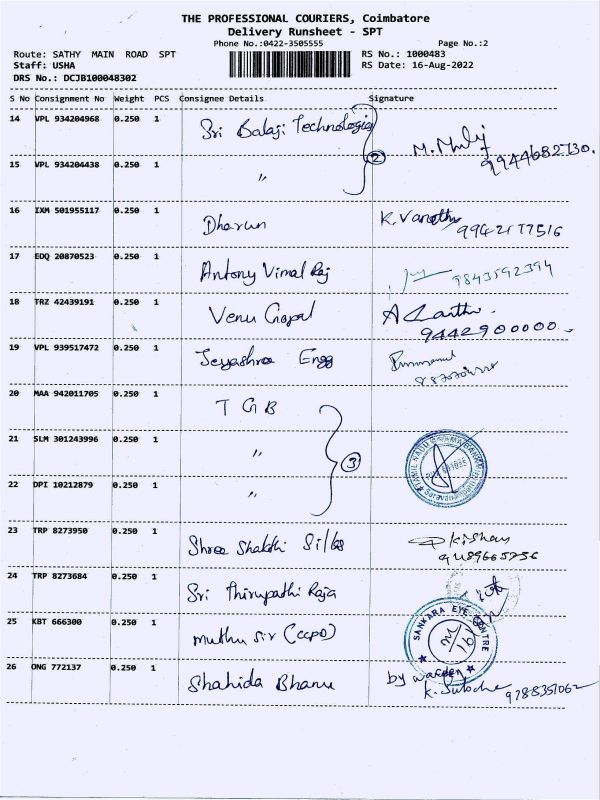 THE PROFESSIONAL COURIERS, Coimbatore
Delivery Runsheet - SPT
Phone No.:0422-3505555 Page No.:2
Route: SATHY MAIN ROAD SPT RS No.: 1000483
Staff: USHA RS Date: 16-Aug-2022
DRS No.: DCJB100048302
S No Consignment No Weight PCS Consignee Details Signature
14 VPL 934204968 0.250 1 Sri Balaji Technologies
2 9944682730.
15 VPL 934204438 0.250 1 "
16 IXM 501955117 0.250 1 Dharun K. Vanathi
9942177516
17 EDQ 20870523 0.250 1 Antony Vimal Raj 9843592394
18 TRZ 42439191 0.250 1 Venu Gopal
9442900000.
19 VPL 939517472 0.250 1 Jeyashree Engg
20 MAA 942011705 0.250 1 T G B
21 SLM 301243996 0.250 1 " 3
22 DPI 10212879 0.250 1 "
23 TRP 8273950 0.250 1 Shree Shakthi Silks Kishan
24 TRP 8273684 0.250 1 Sri Thirupathi Raja
25 KBT 666300 0.250 1 Muthu Sir (CCPD) SANKARA EYE CENTRE
26 ONG 772137 0.250 1 Shahida Bhanu by warden
9788351062